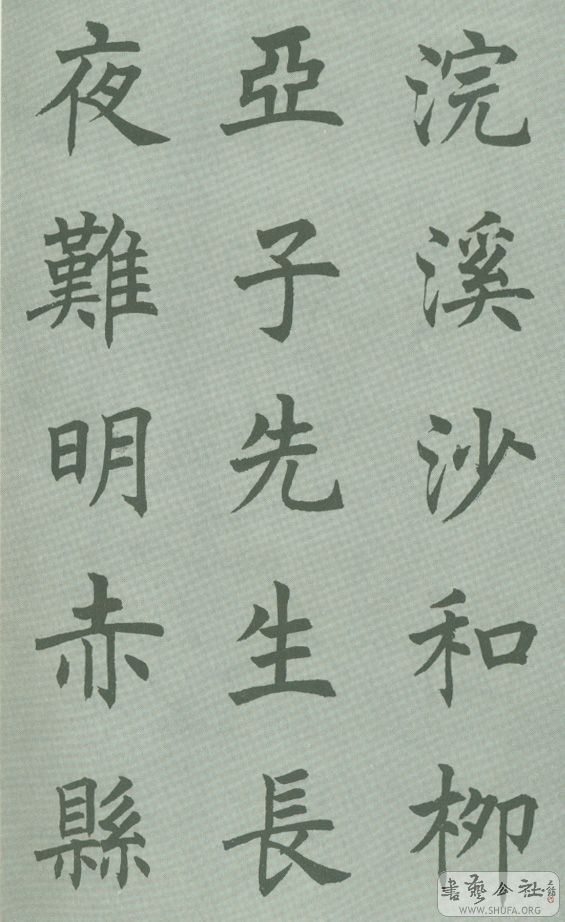 浣溪沙和柳
亞子先生長
夜難明赤縣
書藝公社
WWW.SHUFA.ORG